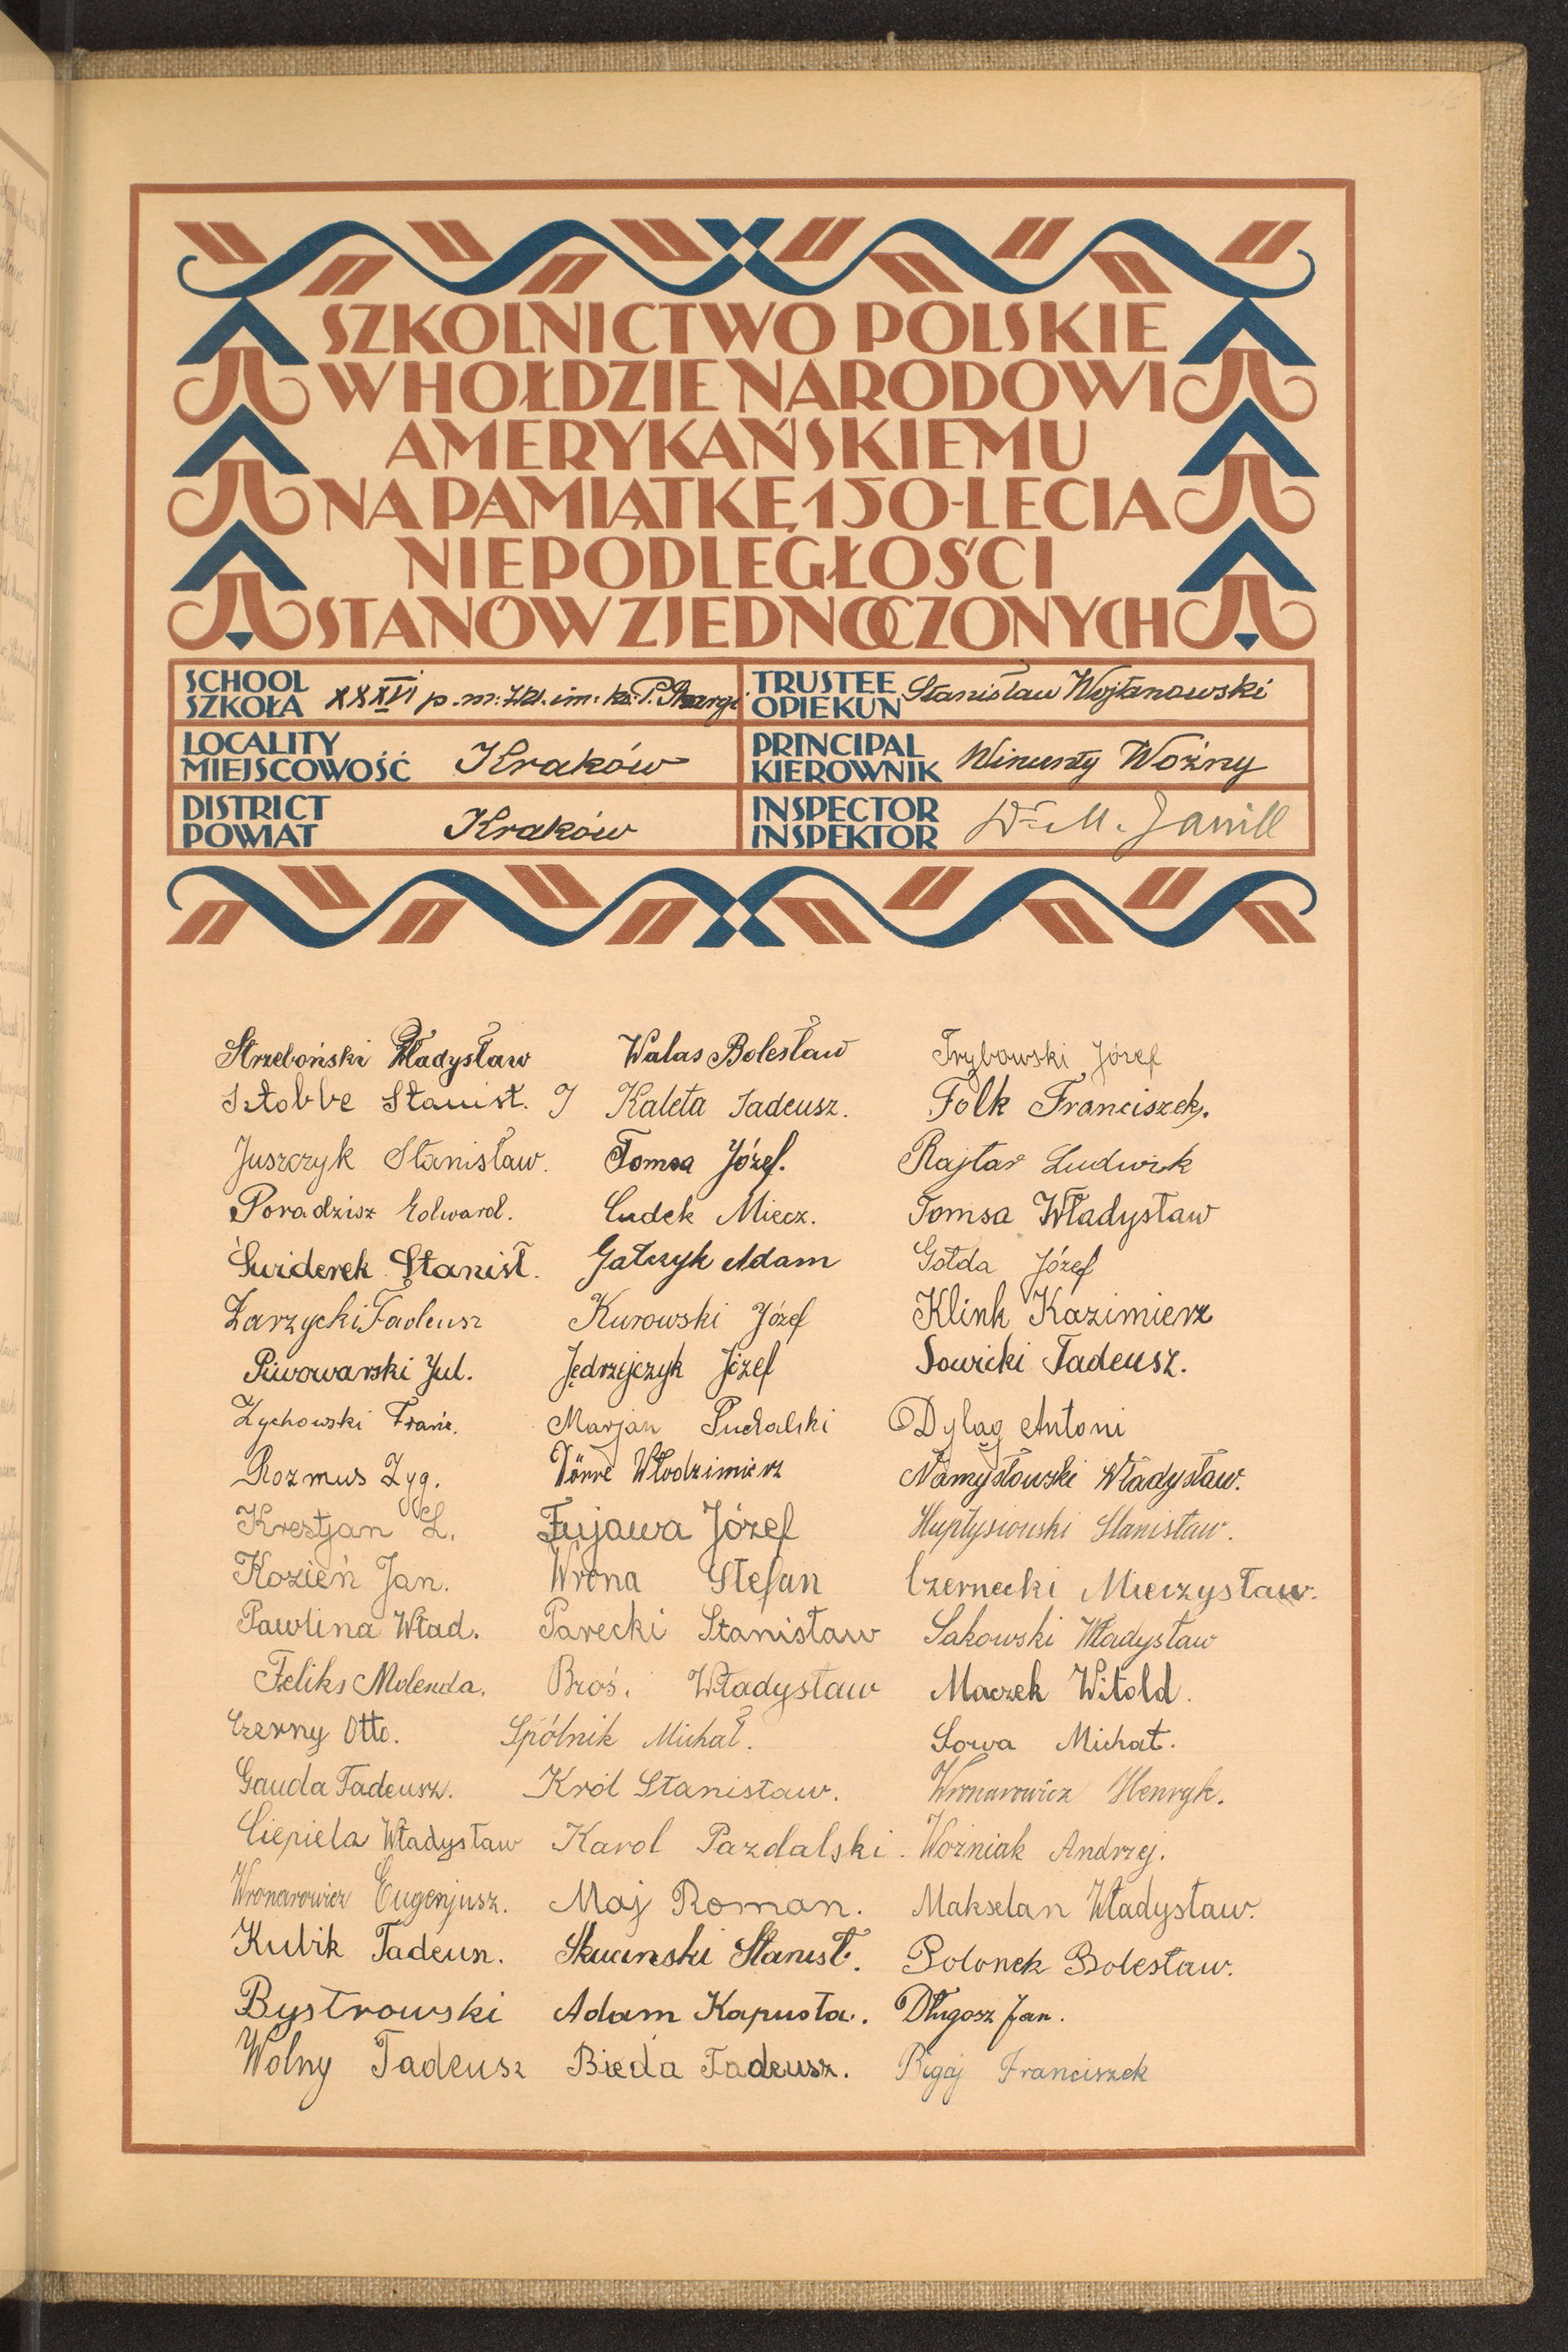 SZKOLNICTWO POLSKIE
W HOŁDZIE NARODOWI
AMERYKAŃSKIEMU
NA PAMIĄTKĘ 150-LECIA
NIEPODLEGŁOŚCI
STANÓW ZJEDNOCZONYCH
SCHOOL
SZKOŁA
XXXVI p. m. szk. im. ks. P. Skargi
TRUSTEE
OPIEKUN
Stanisław Wojtanowski
LOCALITY
MIEJSCOWOŚĆ
Kraków
PRINCIPAL
KIEROWNIK
Wincenty Woźny
DISTRICT
POWIAT
Kraków
INSPECTOR
INSPEKTOR
Dr. M. Janill
Strzeboński Władysław
Sztobbe Stanisł.
Juszczyk Stanisław.
Poradzisz Edward.
Świderek Stanisł.
Zarzycki Tadeusz
Piwowarski Jul.
Zychowski Franc.
Rozmus Zyg.
Krestjan L.
Kozień Jan.
Pawlina Wład.
Feliks Molenda.
Czerny Otto.
Gauda Tadeusz.
Ciepiela Władysław
Wronarowicz Eugenjusz.
Kubik Tadeusz.
Bystrowski
Wolny Tadeusz
Walas Bolesław
J Kaleta Tadeusz.
Tomsa Józef.
Cudek Miecz.
Gałczyk Adam
Kurowski Józef
Jędrzejczyk Józef
Marjan Puchalski
Dörre Włodzimierz
Fujawa Józef
Wrona Stefan
Parecki Stanisław
Broś. Władysław
Spólnik Michał.
Król Stanisław.
Karol Pazdalski.
Maj Roman.
Skuciński Stanisł.
Adam Kapusta.
Bieda Tadeusz.
Trybowski Józef
Folk Franciszek.
Rajtar Ludwik
Tomsa Władysław
Gołda Józef
Klink Kazimierz
Sowicki Tadeusz.
Dyląg Antoni
Namysłowski Władysław.
Huptysiowski Stanisław.
Czernecki Mieczysław.
Sakowski Władysław
Maczek Witold.
Sowa Michał.
Wronarowicz Henryk.
Woźniak Andrzej.
Makselan Władysław.
Polonek Bolesław.
Długosz Jan.
Bigaj Franciszek